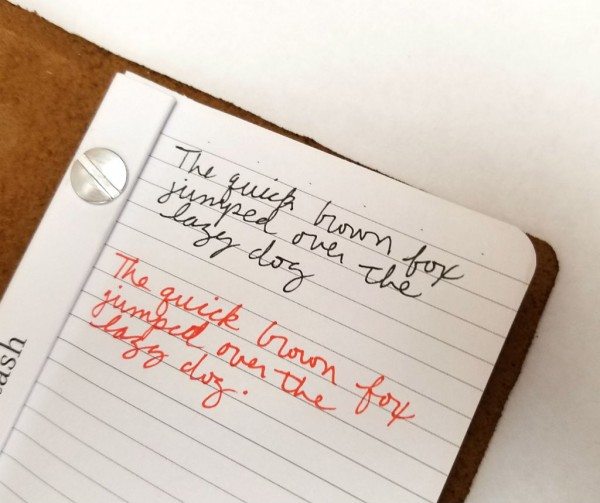 The quick brown fox
jumped over the
lazy dog
The quick brown fox
jumped over the
lazy dog.